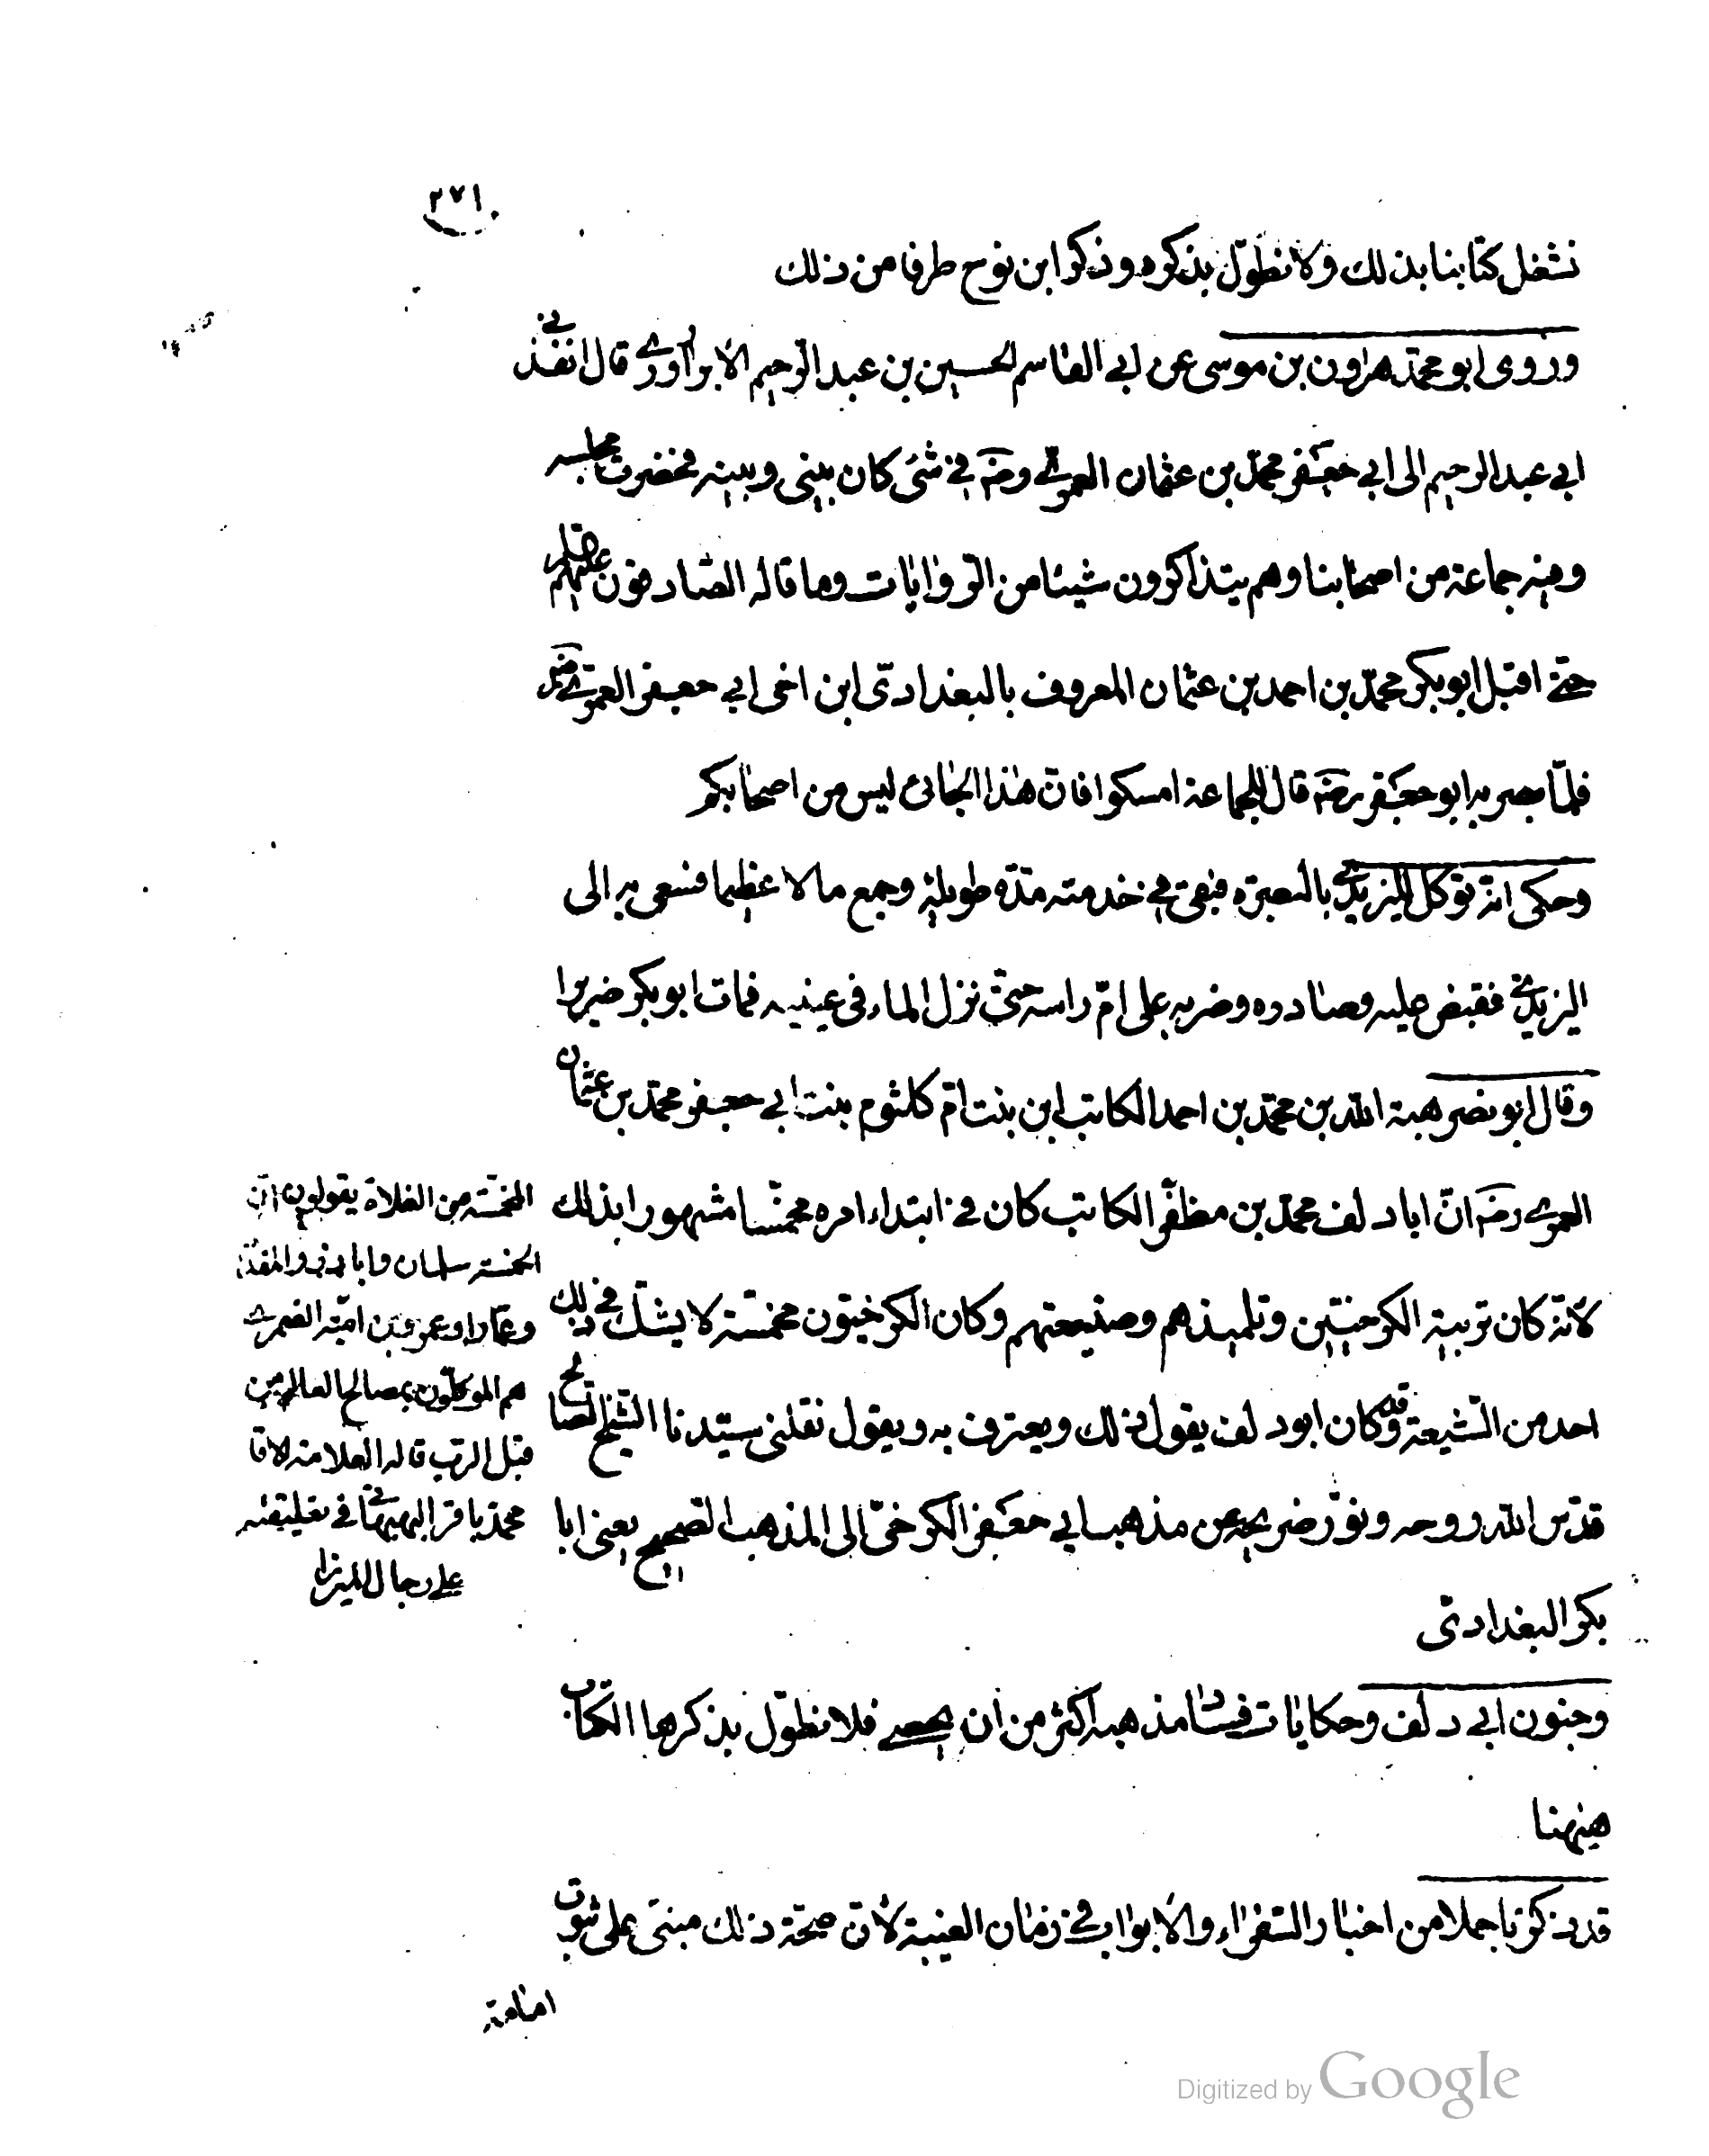 ٢٧١
نشغل كتابنا بذلك ولا نطوّل بذكره وذكر ابن نوح طرفا من ذلك
وروى ابو محمّد هرون بن موسى عن ابي القاسم الحسين بن عبد الرّحيم الابرارورى قال انفذنى
ابي عبد الرحيم الى ابي جعفر محمّد بن عثمان العمرى رضه في شئ كان بيني وبينه فحضرت مجلسه
وفيه جماعة من اصحابنا وهم يتذاكرون شيئا من الرّوايات وما قاله الصّادقون عليهم
حتى اقبل ابو بكر محمّد بن احمد بن عثمان المعروف بالبغدادىّ ابن اخى ابي جعفر العمرىّ رضه
فلمّا بصر به ابو جعفر رضه قال للجماعة امسكوا فانّ هذا الجائى ليس من اصحابكم
وحكى انّه توكل لليزيدى بالبصره فبقى في خدمته مدّه طويلة وجمع مالا عظيما فسعى به الى
اليزيدى فقبض عليه وصادره وضربه على امّ راسه حتى نزل الماء في عينيه فمات ابو بكر ضريرا
وقال ابو نصر هبة الله بن محمّد بن احمد الكاتب ابن بنت امّ كلثوم بنت ابي جعفر محمّد بن عثمان
العمرى رضه انّ ابا دلف محمّد بن مظفّر الكاتب كان في ابتداء امره مخمّسا مشهورا بذلك
لانّه كان تربية الكرخيّين وتلميذهم وصنيعتهم وكان الكرخيّون مخمّسة لا يشكّ في ذلك
احد من الشّيعة وقد كان ابو دلف يقول ذلك ويعترف به ويقول نقلني سيّدنا الشّيخ الصّالح
قدّس الله روحه ونوّر ضريحه عن مذهب ابي جعفر الكرخىّ الى المذهب الصّحيح يعني ابا
بكر البغدادىّ
وجنون ابي دلف وحكايات فساد مذهبه اكثر من ان يحصى فلا نطوّل بذكرها الكتاب
هيهنا
قد ذكرنا جملا من اخبار السّفراء والابواب في زمان الغيبة لانّ صحّة ذلك مبنىّ على ثبوت
امامة
المخمّسة من الغلاة يقولون انّ
الخمسة سلمان وابا ذر والمقداد
وعمّارا وعمرو بن اميّة الضمرى
هم الموكّلون بمصالح العالم من
قبل الرب قاله العلامة الاقا
محمّد باقر البهبهانى في تعليقته
على رجال الميرزا
Digitized by Google